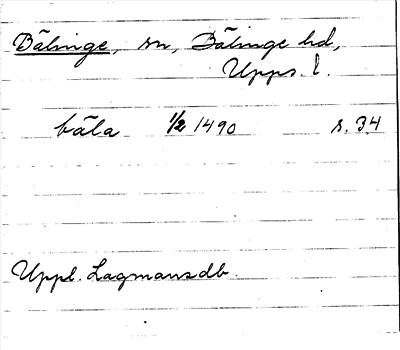 Bälinge, sn, Bälinge hd,
Upps. l.
bäla 1/2 1490 s. 34
Uppl. Lagmansdb.